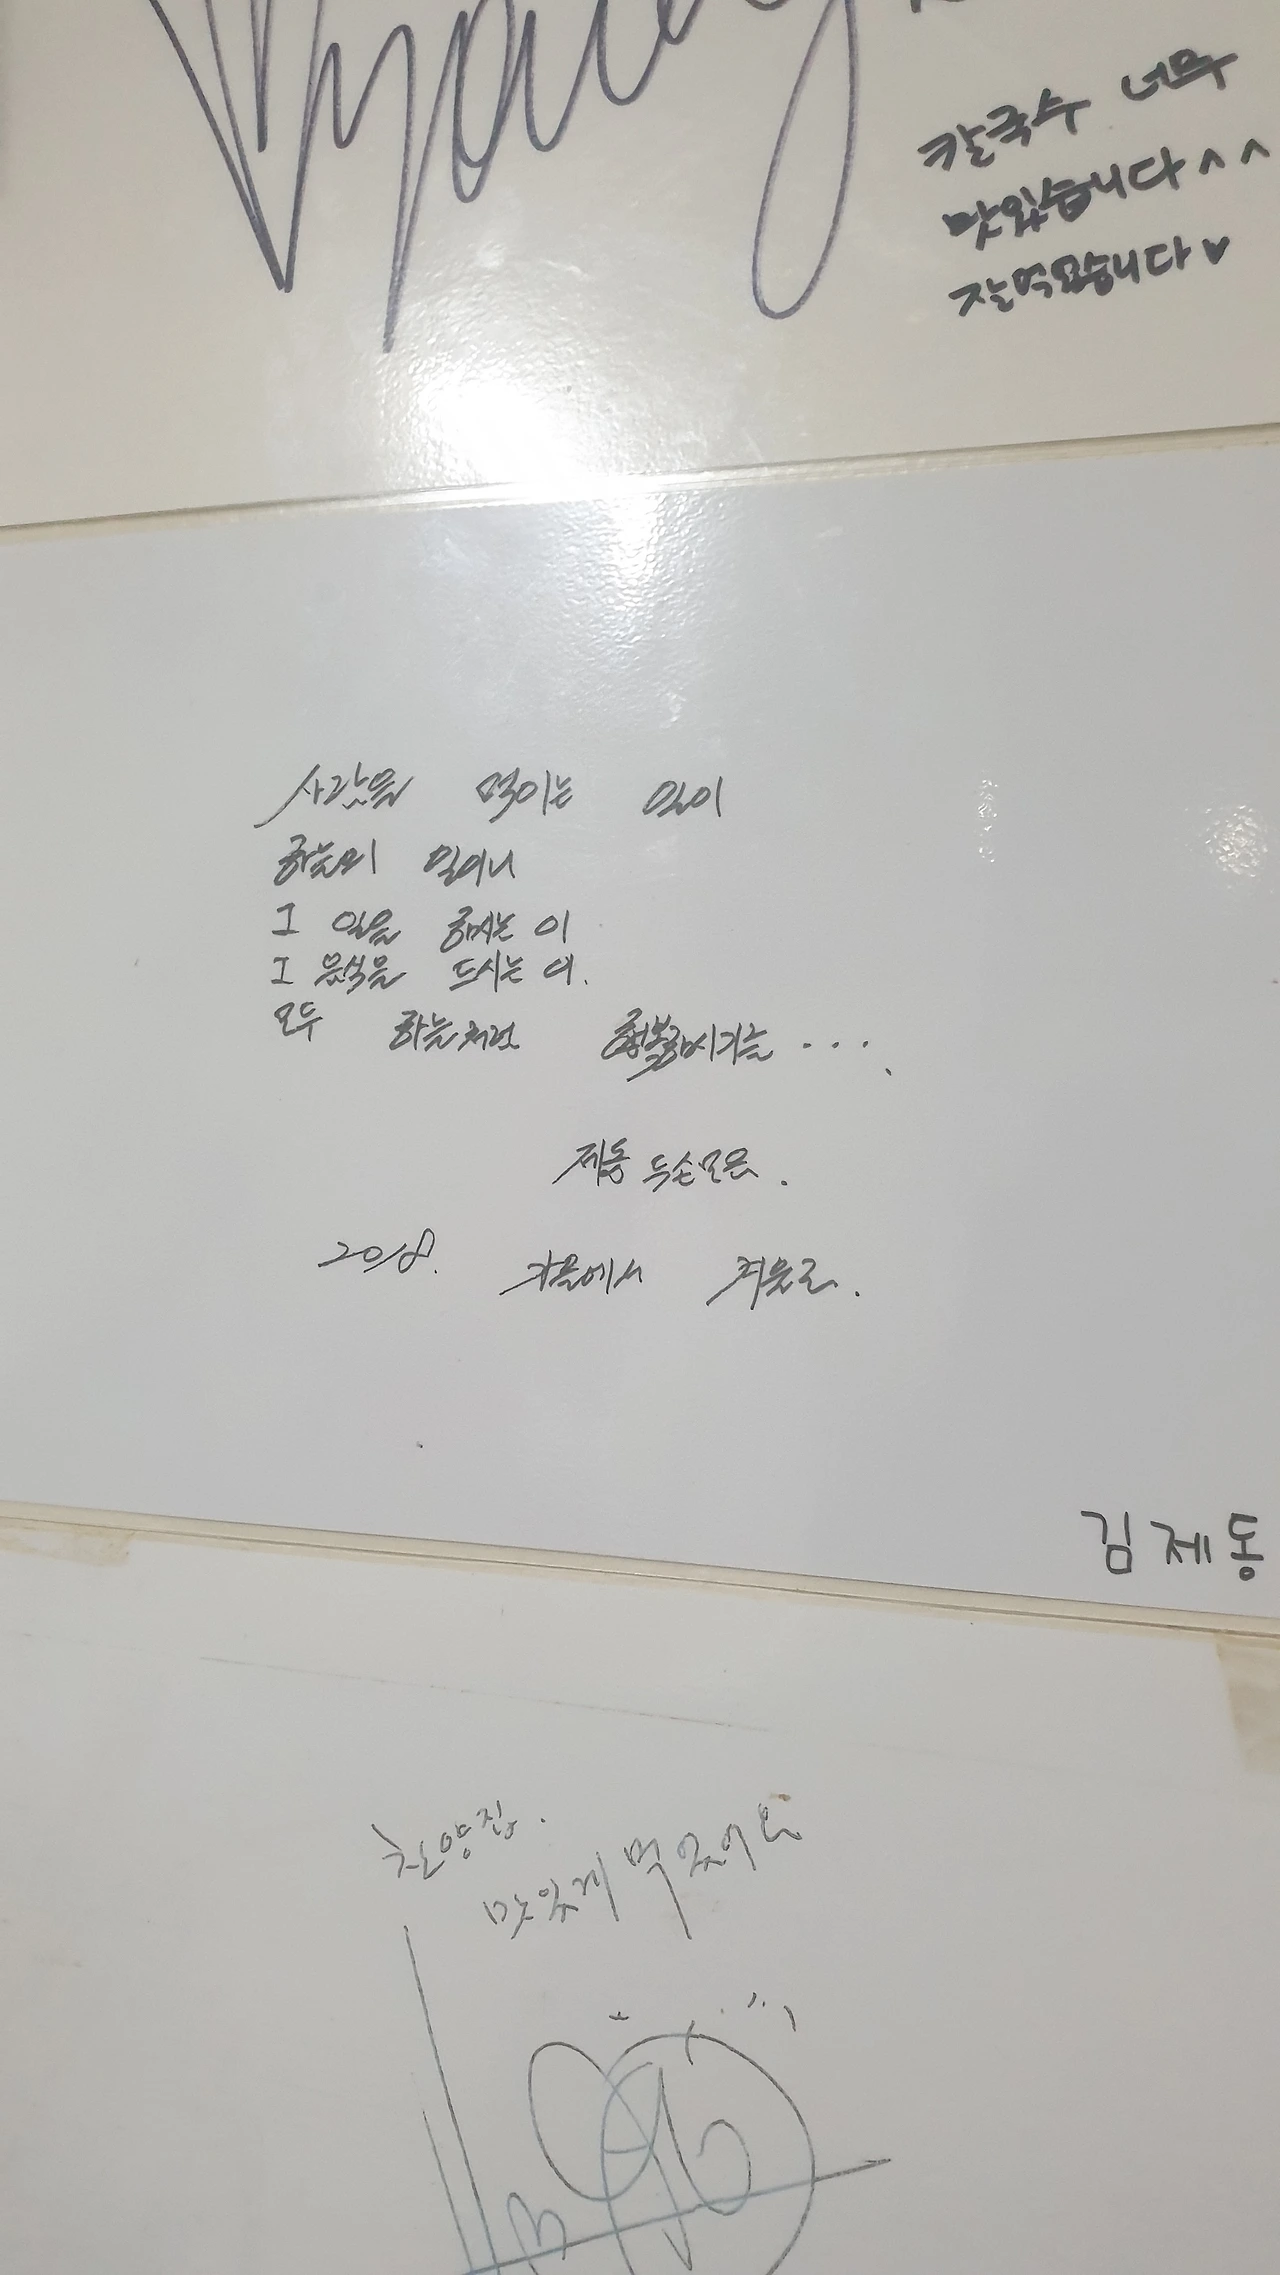 칼국수 너무
맛있습니다 ^^
잘먹었습니다 ♥
사람을 먹이는 일이
하늘의 일이니
그 일을 하시는 이
그 음식을 드시는 이.
모두 하늘처럼 행복하시기를 ....
제동 두손모음.
2018. 가을에서 겨울로.
김제동
찬양집.
맛있게 먹었어요